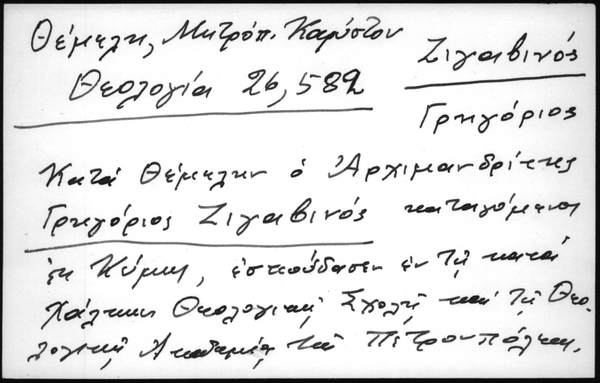 Θέμελη, Μητρόπ. Καρύστου
Θεολογία 26, 582
Ζιγαβινός
Γρηγόριος
Κατά Θέμελην ὁ Ἀρχιμανδρίτης
Γρηγόριος Ζιγαβινός καταγόμενος
ἐκ Κύμης, ἐσπούδασεν ἐν τῇ κατά
Χάλκην Θεολογικῇ Σχολῇ καί τῇ Θεο-
λογικῇ Ἀκαδημίᾳ τῆς Πετρουπόλεως.